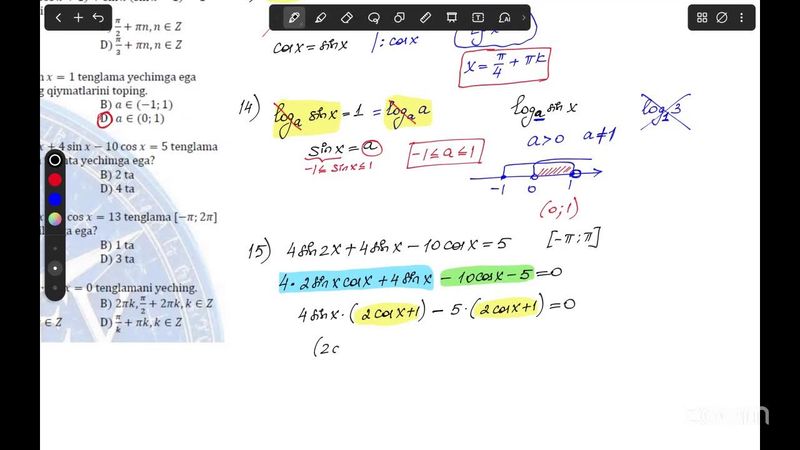 D) π/3 + πn, n ∈ Z
π/2 + πn, n ∈ Z
x = 1 tenglama yechimga ega
qiymatlarini toping.
B) a ∈ (−1; 1)
D) a ∈ (0; 1)
+ 4 sin x − 10 cos x = 5 tenglama
yechimga ega?
B) 2 ta
D) 4 ta
cos x = 13 tenglama [−π; 2π]
ega?
B) 1 ta
D) 3 ta
= 0 tenglamani yeching.
B) 2πk, π/2 + 2πk, k ∈ Z
∈ Z D) π/k + πk, k ∈ Z
cosx = sinx |: cosx
x = π/4 + πk
14) log_a sinx = 1 = log_a a
sinx = a
−1 ≤ sinx ≤ 1
−1 ≤ a ≤ 1
log_a sinx
a>0 a≠1
−1 0 1
(0;1)
log_1 3
15) 4sin2x + 4sinx − 10cosx = 5 [−π;π]
4·2sinxcosx + 4sinx − 10cosx − 5 = 0
4sinx·(2cosx+1) − 5·(2cosx+1) = 0
(2c